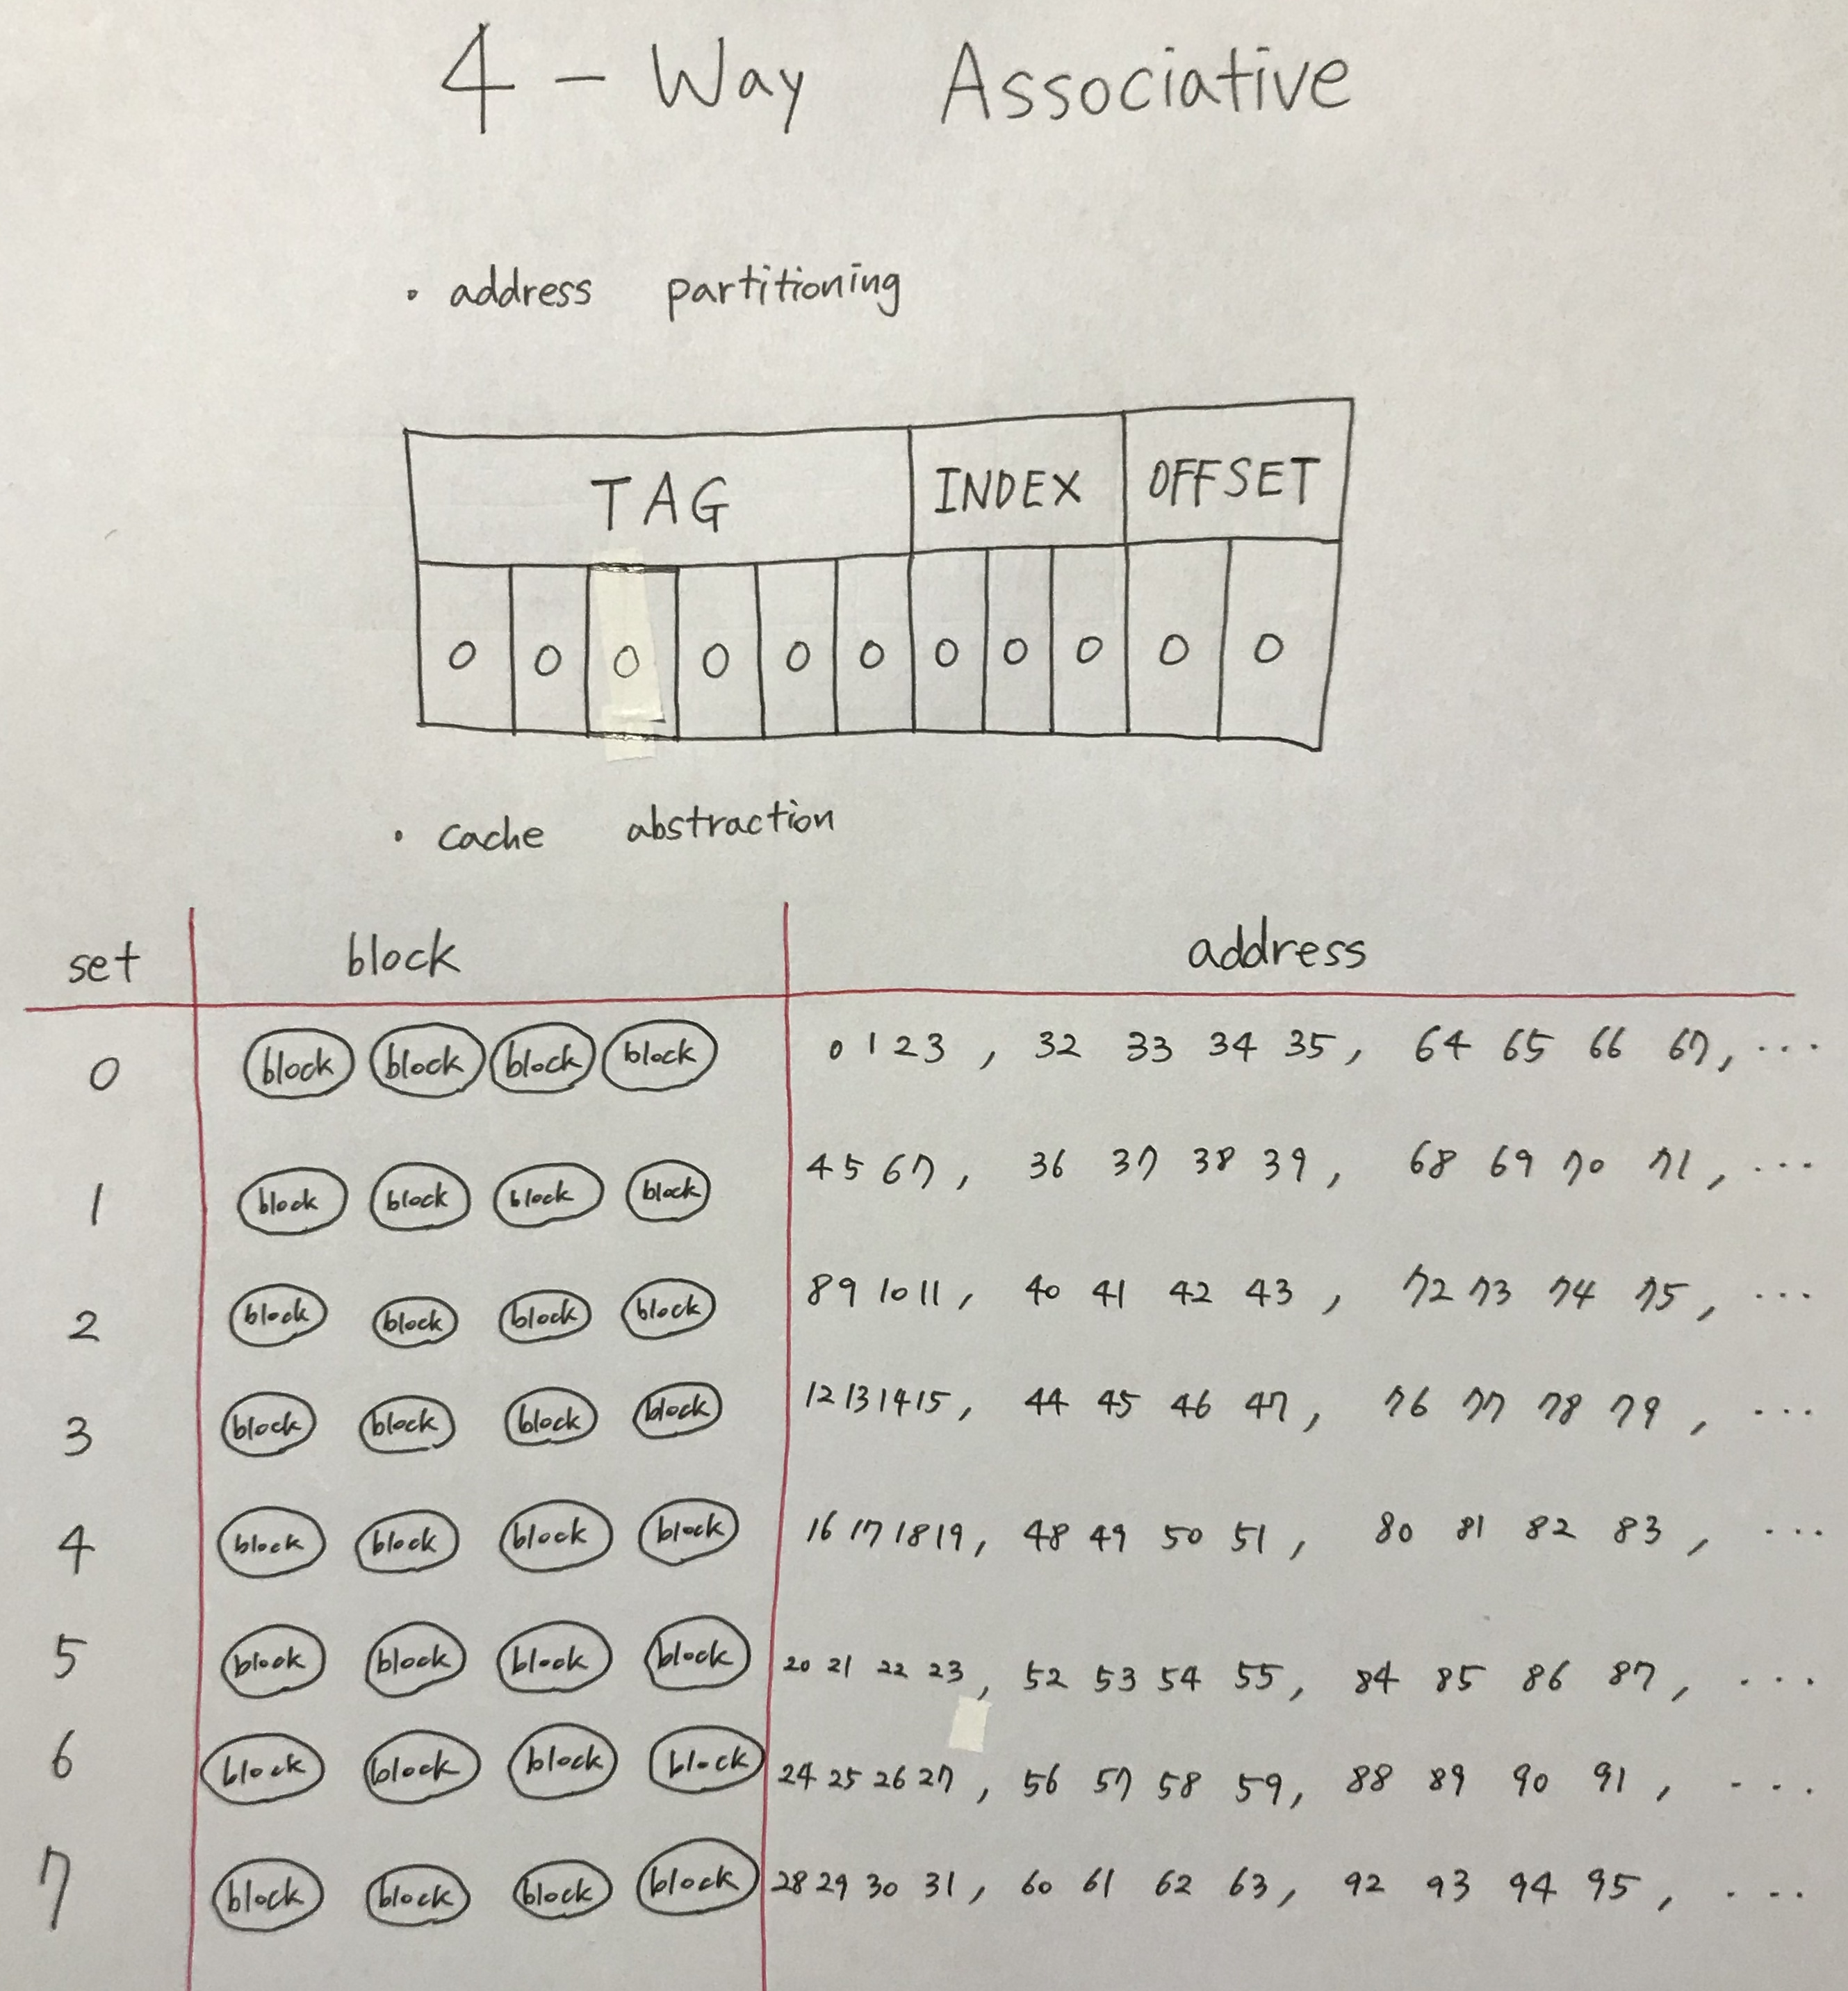 4 - Way Associative
• address partitioning
TAG INDEX OFFSET
0 0 0 0 0 0 0 0 0 0 0
• cache abstraction
set block address
0 block block block block 0 1 2 3 , 32 33 34 35 , 64 65 66 67 , ...
1 block block block block 4 5 6 7 , 36 37 38 39 , 68 69 70 71 , ...
2 block block block block 8 9 10 11 , 40 41 42 43 , 72 73 74 75 , ...
3 block block block block 12 13 14 15 , 44 45 46 47 , 76 77 78 79 , ...
4 block block block block 16 17 18 19 , 48 49 50 51 , 80 81 82 83 , ...
5 block block block block 20 21 22 23 , 52 53 54 55 , 84 85 86 87 , ...
6 block block block block 24 25 26 27 , 56 57 58 59 , 88 89 90 91 , ...
7 block block block block 28 29 30 31 , 60 61 62 63 , 92 93 94 95 , ...